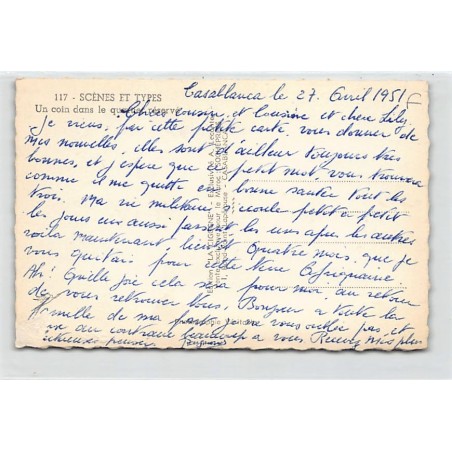 117 - SCÈNES ET TYPES
Un coin dans le quartier réservé
Casablanca le 27 Avril 1951
Chers cousin, et Cousine et chère Lily
Je viens, par cette petite carte, vous donner de
mes nouvelles, elles sont d'ailleur toujours très
bonnes, et j'espère que petit mot vous trouvera
comme il me quitte en bonne santée tout les
trois. Ma vie militaire s'écoule petit a petit
les jours eux aussi passent les uns après les autres
voila maintenant, bientôt Quatre mois, que je
vous quittais pour terre Afriquaine
Ah! Quelle joie cela sera pour moi au retour
de vous retrouver tous. Bonjour a toute la
famille de ma part, je ne vous oublie pas, et
au contraire beaucoup a vous Recevez mes plus